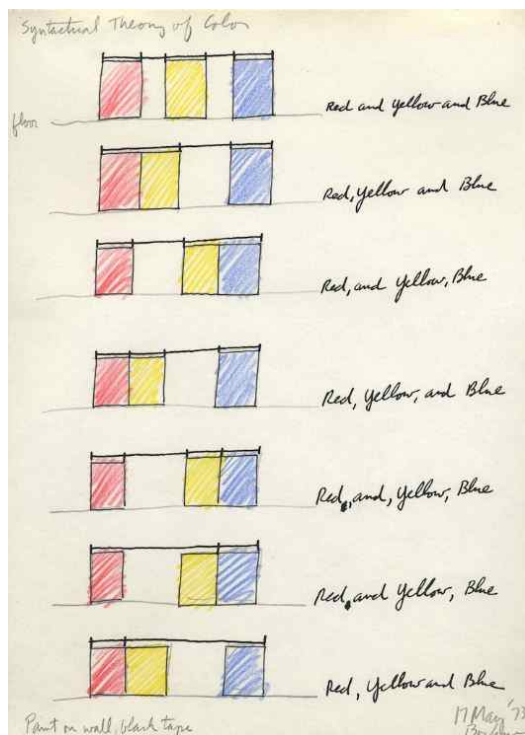 Syntactual Theory of Color
Red and Yellow and Blue
floor
Red, Yellow and Blue
Red, and Yellow, Blue
Red, Yellow, and Blue
Red, and, Yellow, Blue
Red, and Yellow, Blue
Red, Yellow and Blue
Paint on wall, black tape
17 May '73